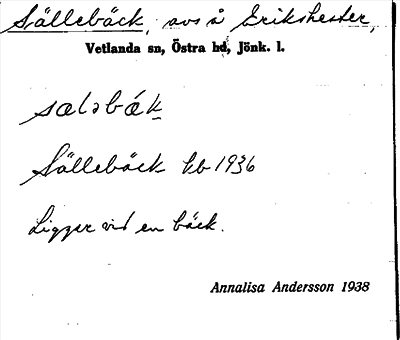 Sällebäck, avs å Erikshester,
Vetlanda sn, Östra hd, Jönk. l.
sæləbæk
Sällebäck kb 1936
Ligger vid en bäck.
Annalisa Andersson 1938